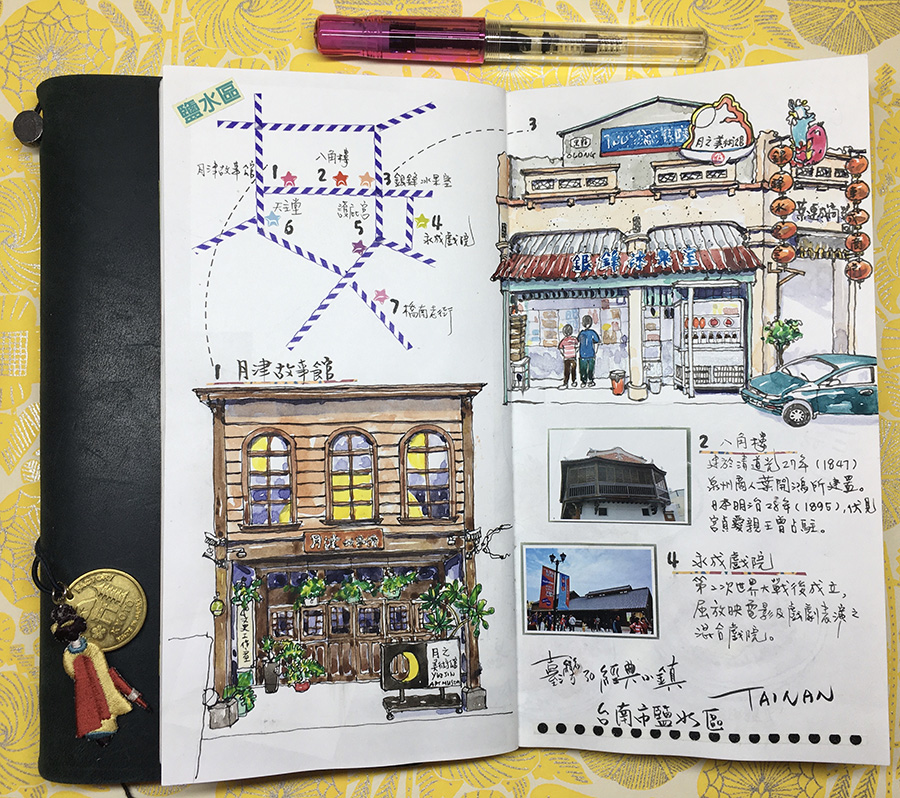 鹽水區
月津故事館 1
八角樓
2
3 銀鋒冰果室
天主堂
6
護庇宮
5
4
永成戲院
7 橋南老街
1 月津故事館
月津故事館
文史工作室
月之
美術館
YUEJIN
ART MUSEUM
3
月之美術館
銀鋒冰果室
2 八角樓
建於清道光27年(1847)
泉州商人葉開鴻所建置。
日本明治28年(1895),伏見
宮貞愛親王曾占駐。
4 永成戲院
第二次世界大戰後成立,
屬放映電影及戲劇表演之
混合戲院。
臺灣30經典小鎮
TAINAN
台南市鹽水區